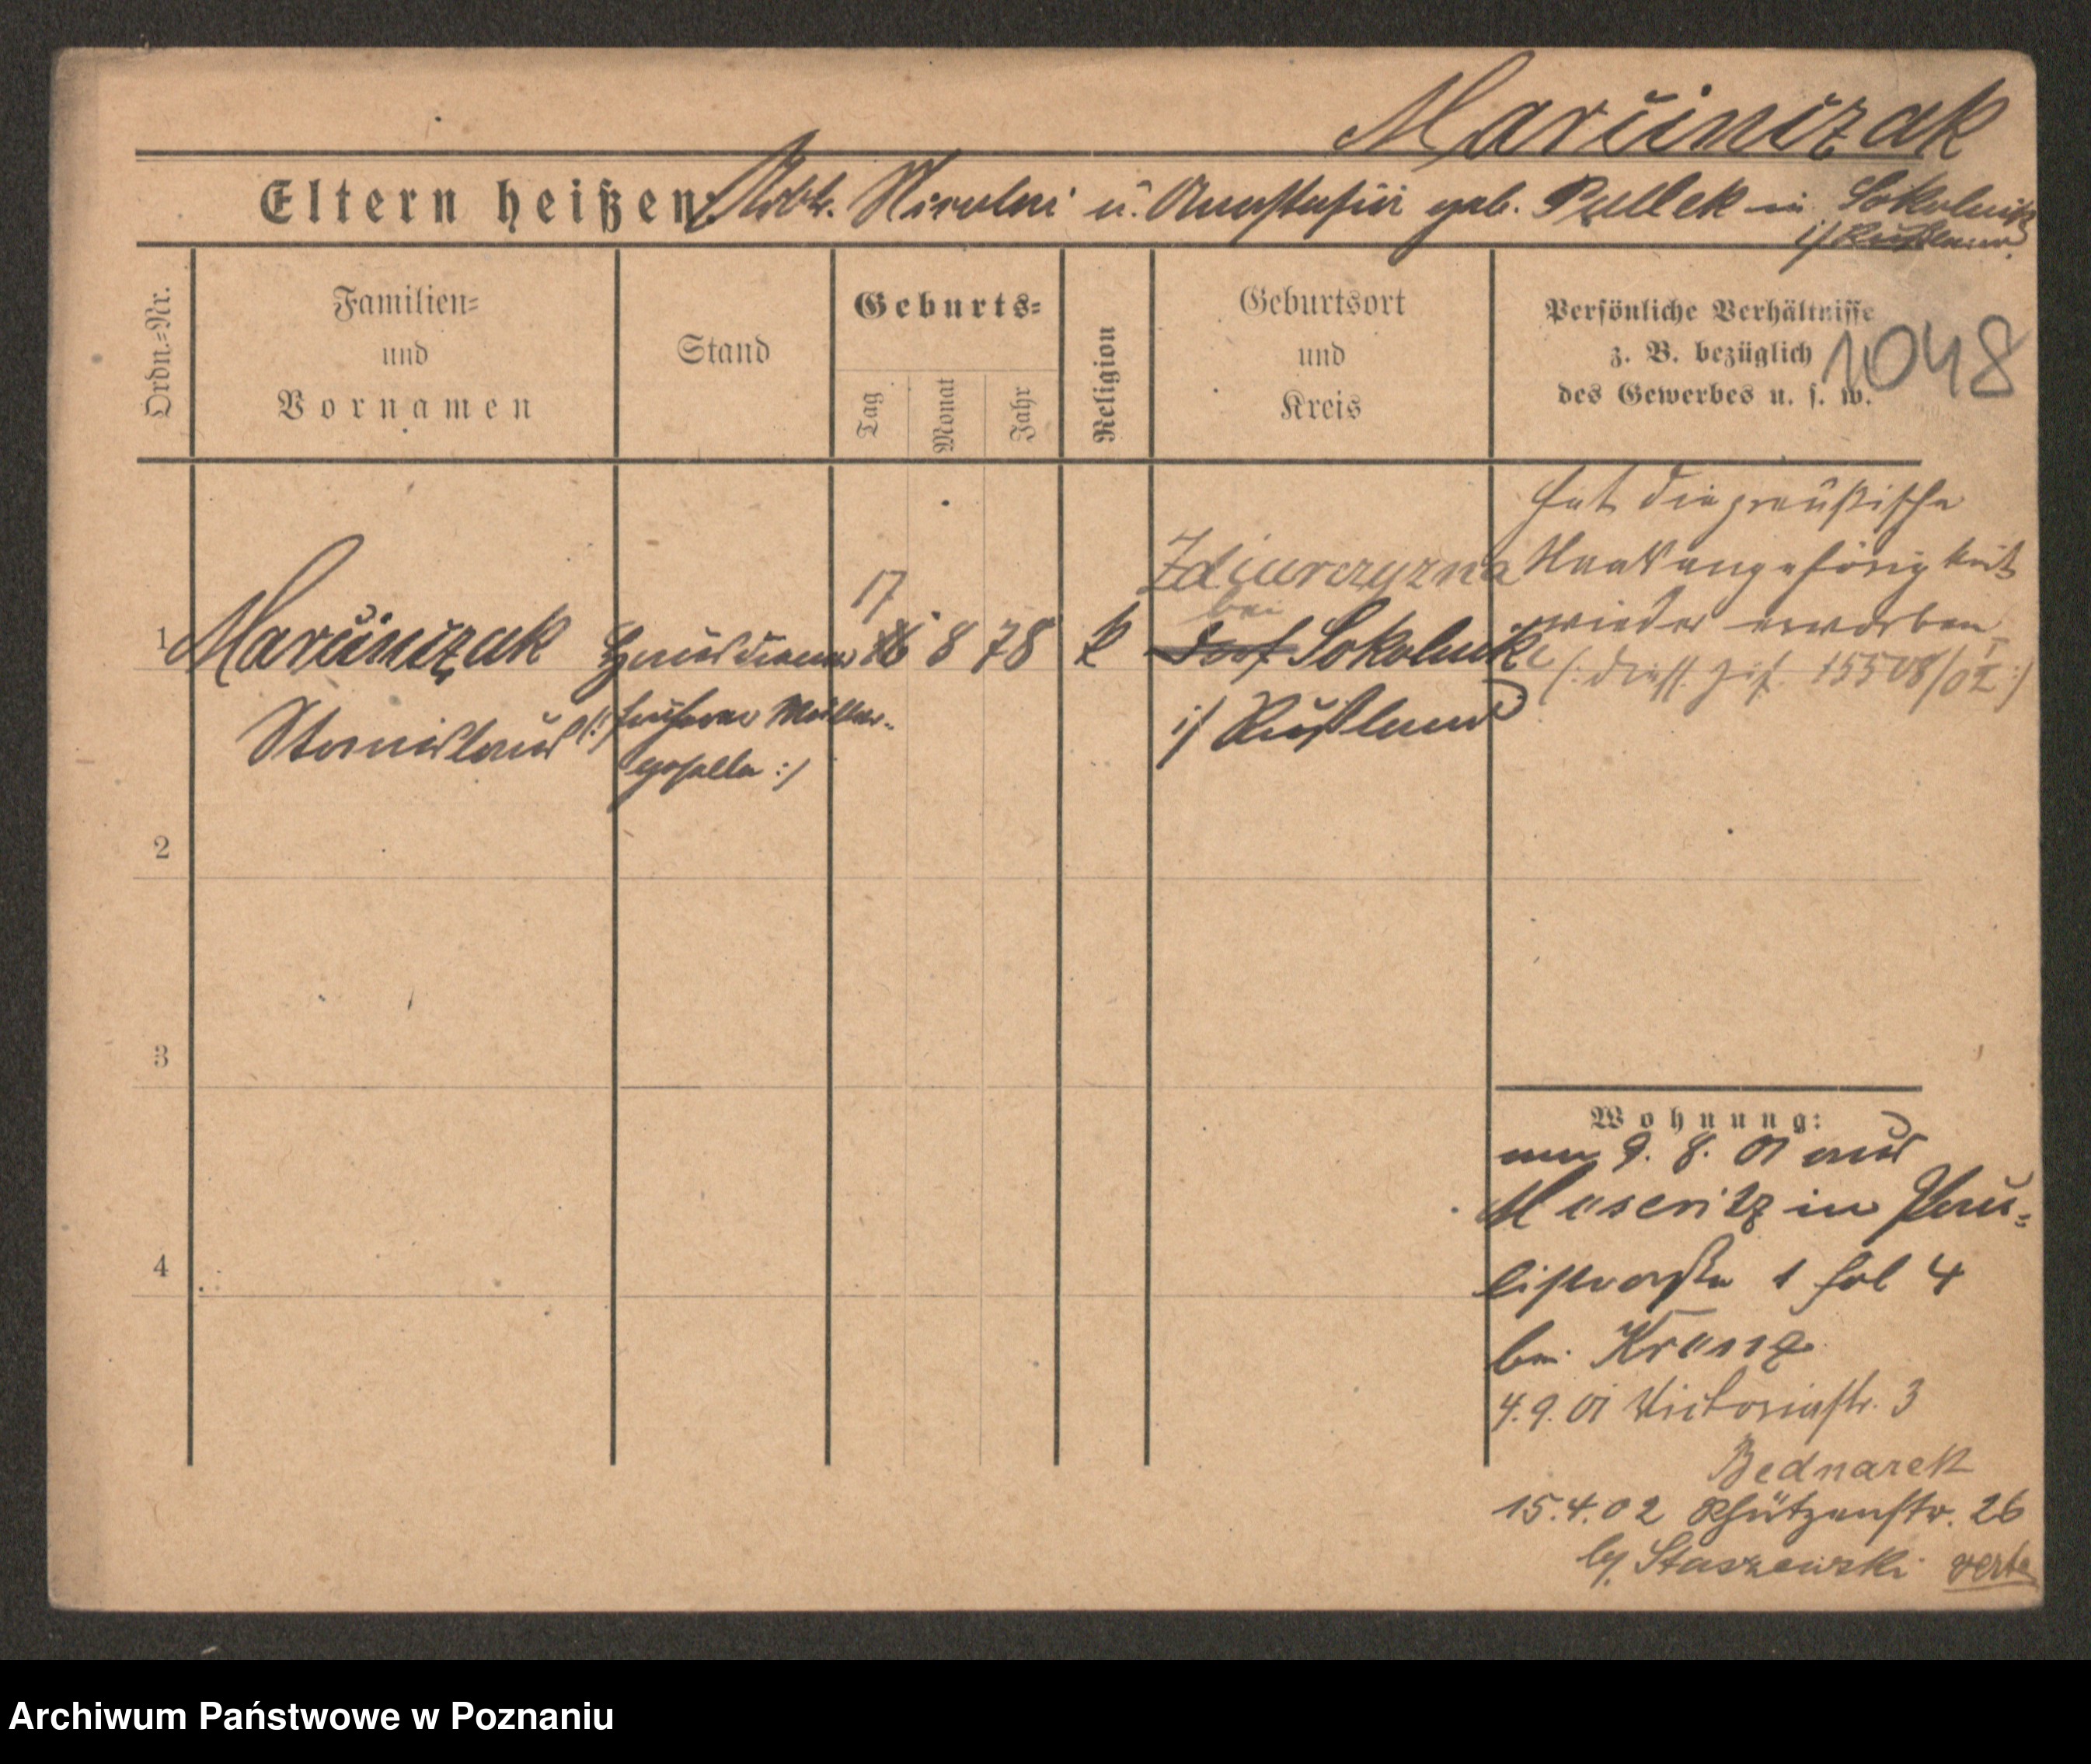 Marciniczak
Eltern heißen: Arb. Nicolai u. Anastasia geb. Pallek in Sokolnik
i/ Rußland.
Ordn.=Nr.
Familien=
und
Vornamen
Stand
Geburts=
Tag
Monat
Jahr
Religion
Geburtsort
und
Kreis
Persönliche Verhältnisse
z. B. bezüglich
des Gewerbes u. s. w.
1048
1
Marciniczak
Stanislaus
Hausdiener
(: früherer Müller-
geselle :)
17
16 8 78
k
bei
Dorf Sokolniki
i/ Rußland
hat die preußische
Staatsangehörigkeit
wieder erworben
15508/02 :)
2
3
4
Wohnung:
am 9. 8. 01 aus
Meseritz in Pau=
likirchstr 1 Hol 4
bei Krenz
4. 9. 01 Victoriastr. 3
Bednarek
15. 4. 02 Schützenstr. 26
by. Staszewski verte
Archiwum Państwowe w Poznaniu